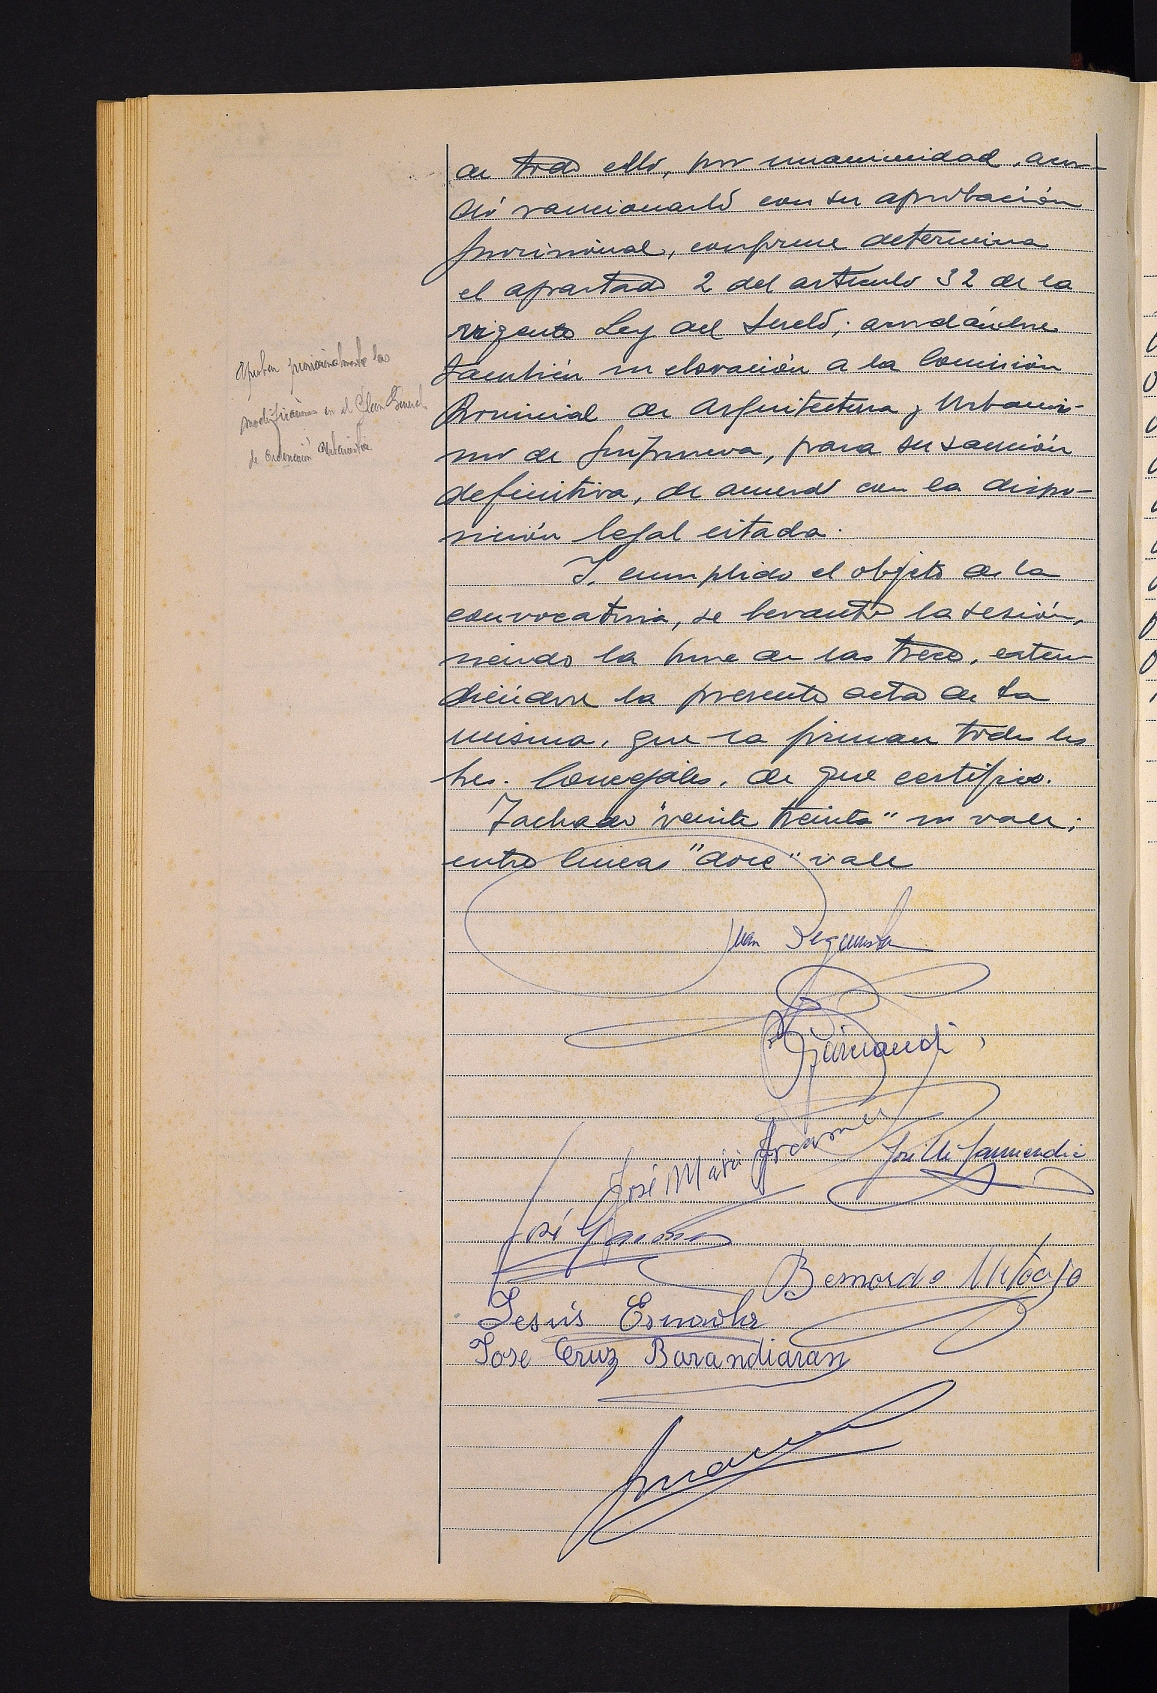 de todo ello, por unanimidad, acor-
dó sancionarlo con su aprobación
provisional, conforme determina
el apartado 2 del artículo 32 de la
vigente Ley del Suelo; acordándose
también su elevación a la Comisión
Provincial de Arquitectura y Urbanis-
mo de Guipuzcoa, para su sanción
definitiva, de acuerdo con la dispo-
sición legal citada.
Y, cumplido el objeto de la
convocatoria, se levantó la sesión,
siendo la hora de las trece, exten-
diéndose la presente acta de la
misma, que la firman todos los
Sres. Concejales, de que certifico.
Tachado "veinte treinta" no vale;
entre lineas "doce" vale
Aprobar provisionalmente las
modificaciones en el Plan General
de Ordenación Urbanística
Juan
José Maria
José M. Garmendia
José
Bernardo
Jesús Esnaola
Jose Cruz Barandiaran